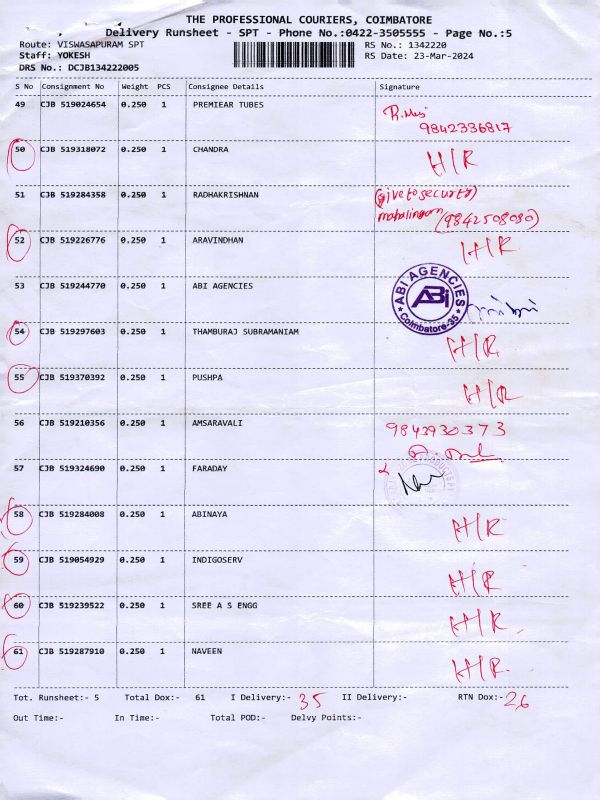 THE PROFESSIONAL COURIERS, COIMBATORE
Delivery Runsheet - SPT - Phone No.:0422-3505555 - Page No.:5
Route: VISWASAPURAM SPT RS No.: 1342220
Staff: YOKESH RS Date: 23-Mar-2024
DRS No.: DCJB134222005
S No Consignment No Weight PCS Consignee Details Signature
49 CJB 519024654 0.250 1 PREMIEAR TUBES
9842336817
50 CJB 519318072 0.250 1 CHANDRA H/R
51 CJB 519284358 0.250 1 RADHAKRISHNAN (give to security)
mahalingam (9842508080)
52 CJB 519226776 0.250 1 ARAVINDHAN H/R
53 CJB 519244770 0.250 1 ABI AGENCIES ABI AGENCIES
ABi
Coimbatore-35
54 CJB 519297603 0.250 1 THAMBURAJ SUBRAMANIAM H/R
55 CJB 519370392 0.250 1 PUSHPA H/R
56 CJB 519210356 0.250 1 AMSARAVALI 9843930373
57 CJB 519324690 0.250 1 FARADAY
58 CJB 519284008 0.250 1 ABINAYA H/R
59 CJB 519054929 0.250 1 INDIGOSERV H/R
60 CJB 519239522 0.250 1 SREE A S ENGG H/R
61 CJB 519287910 0.250 1 NAVEEN H/R.
Tot. Runsheet:- 5 Total Dox:- 61 I Delivery:- 35 II Delivery:- RTN Dox:- 26
Out Time:- In Time:- Total POD:- Delvy Points:-